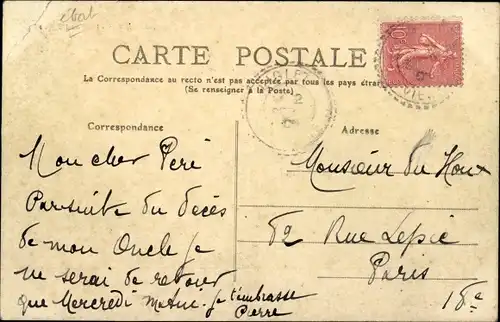 état
CARTE POSTALE
La Correspondance au recto n'est pas acceptée par tous les pays étran
(Se renseigner à la Poste)
Correspondance
Adresse
Mon cher Peré
Par suite du décés
de mon Oncle je
ne serai de retour
que Mercredi matin. je t'embrasse
Pierre
Monsieur du Houx
62 Rue Lepic
Paris
18e